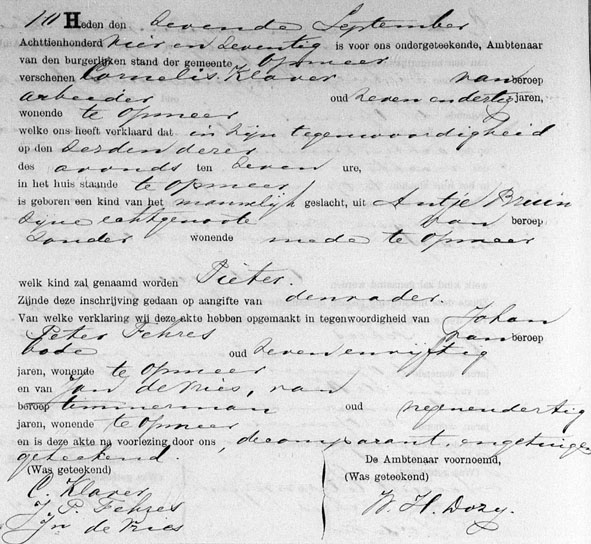 Heden den zevende September
Achttienhonderd vier en zeventig is voor ons ondergeteekende, Ambtenaar
van den burgerlijken stand der gemeente Opmeer
verschenen Cornelis Klaver van beroep
arbeider oud zeven en dertig jaren,
wonende te Opmeer
welke ons heeft verklaard dat in zijn tegenwoordigheid
op den derden dezer
des avonds ten zeven ure,
in het huis staande te Opmeer
is geboren een kind van het mannelijk geslacht, uit Antje Bruin
zijne echtgenoote van beroep
zonder wonende mede te Opmeer
welk kind zal genaamd worden Pieter.
Zijnde deze inschrijving gedaan op aangifte van den vader.
Van welke verklaring wij deze akte hebben opgemaakt in tegenwoordigheid van Johan
Peter Fehres van beroep
bode oud zeven en vijftig
jaren, wonende te Opmeer
en van Jan de Vries, van
beroep timmerman oud negenendertig
jaren, wonende te Opmeer
en is deze akte na voorlezing door ons, de comparant en getuigen
geteekend.
(Was geteekend)
C. Klaver
J. P. Fehres
Jn de Vries
De Ambtenaar voornoemd,
(Was geteekend)
W. H. Dozy.